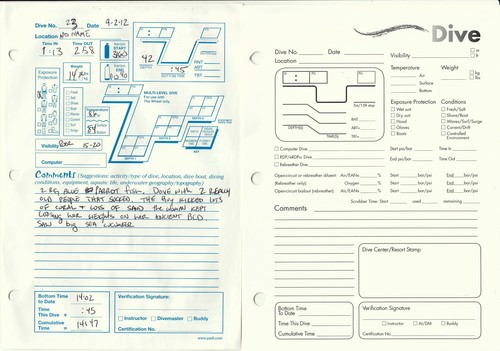 Dive No. 23 Date 9-2-12
Location NO NAME
Time IN Time OUT
1:13 2:58
START
END
DEPTH
42
:45
TIME
RNT
ABT
TBT
Exposure Protection
Weight
14
MULTI-LEVEL DIVE
For use with
The Wheel only
Temperature
84
Visibility Poor 15-20
Computer
Comments (Suggestions: activity/type of dive, location, dive boat, diving
conditions, equipment, aquatic life, underwater geography/topography)
2 BIG BLUE PARROT FISH. DOVE WITH 2 REALLY
OLD PEOPLE THAT SUCKED. THE GUY KICKED LOTS
OF CORAL & LOTS OF SAND. THE WOMAN KEPT
LOSING HER WEIGHTS ON HER ANCIENT BCD.
SAW big SEA CUCUMBER
Bottom Time
to Date 14:02
Time This Dive + :45
Cumulative
Time = 14:47
Verification Signature:
Instructor Divemaster Buddy
Certification No.
www.padi.com
Dive
Dive No. Date
Location
Visibility
Temperature
Air
Surface
Bottom
Weight
kg
lbs
5m/15ft stop
DEPTH(S)
TIME(S)
RNT
ABT
TBT
Exposure Protection
Wet suit
Dry suit
Hood
Gloves
Boots
Conditions
Fresh/Salt
Shore/Boat
Waves/Surf/Surge
Current/Drift
Controlled
Environment
Computer Dive
RDP/eRDPML Dive
Rebreather Dive
Start psi/bar
End psi/bar
Time In
Time Out
Open-circuit or rebreather diluent Air/EANx % Start bar/psi End bar/psi
(Rebreather only) Oxygen % Start bar/psi End bar/psi
Open-circuit bailout (rebreather) Air/EANx % Start bar/psi End bar/psi
Scrubber Time: Start used remaining
Comments
Dive Center/Resort Stamp
Bottom Time
to Date
Time This Dive
Cumulative Time
Verification Signature:
Instructor AI/DM Buddy
Certification No.